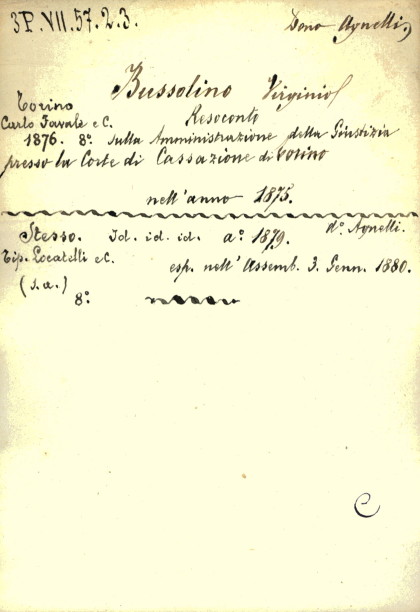 3P. VII. 57. 2. 3. Dono Agnelli
Bussolino Virginio
Torino
Carlo Favale e C. Resoconto
1876. 8º. sulla Amministrazione della Giustizia
presso la Corte di Cassazione di Torino
nell'anno 1875.
Stesso. Id. id. id. aº. 1879. dº. Agnelli.
Tip. Locatelli e C. esp. nell' Assemb. 3. Genn. 1880.
(s. a.)
8º.
C